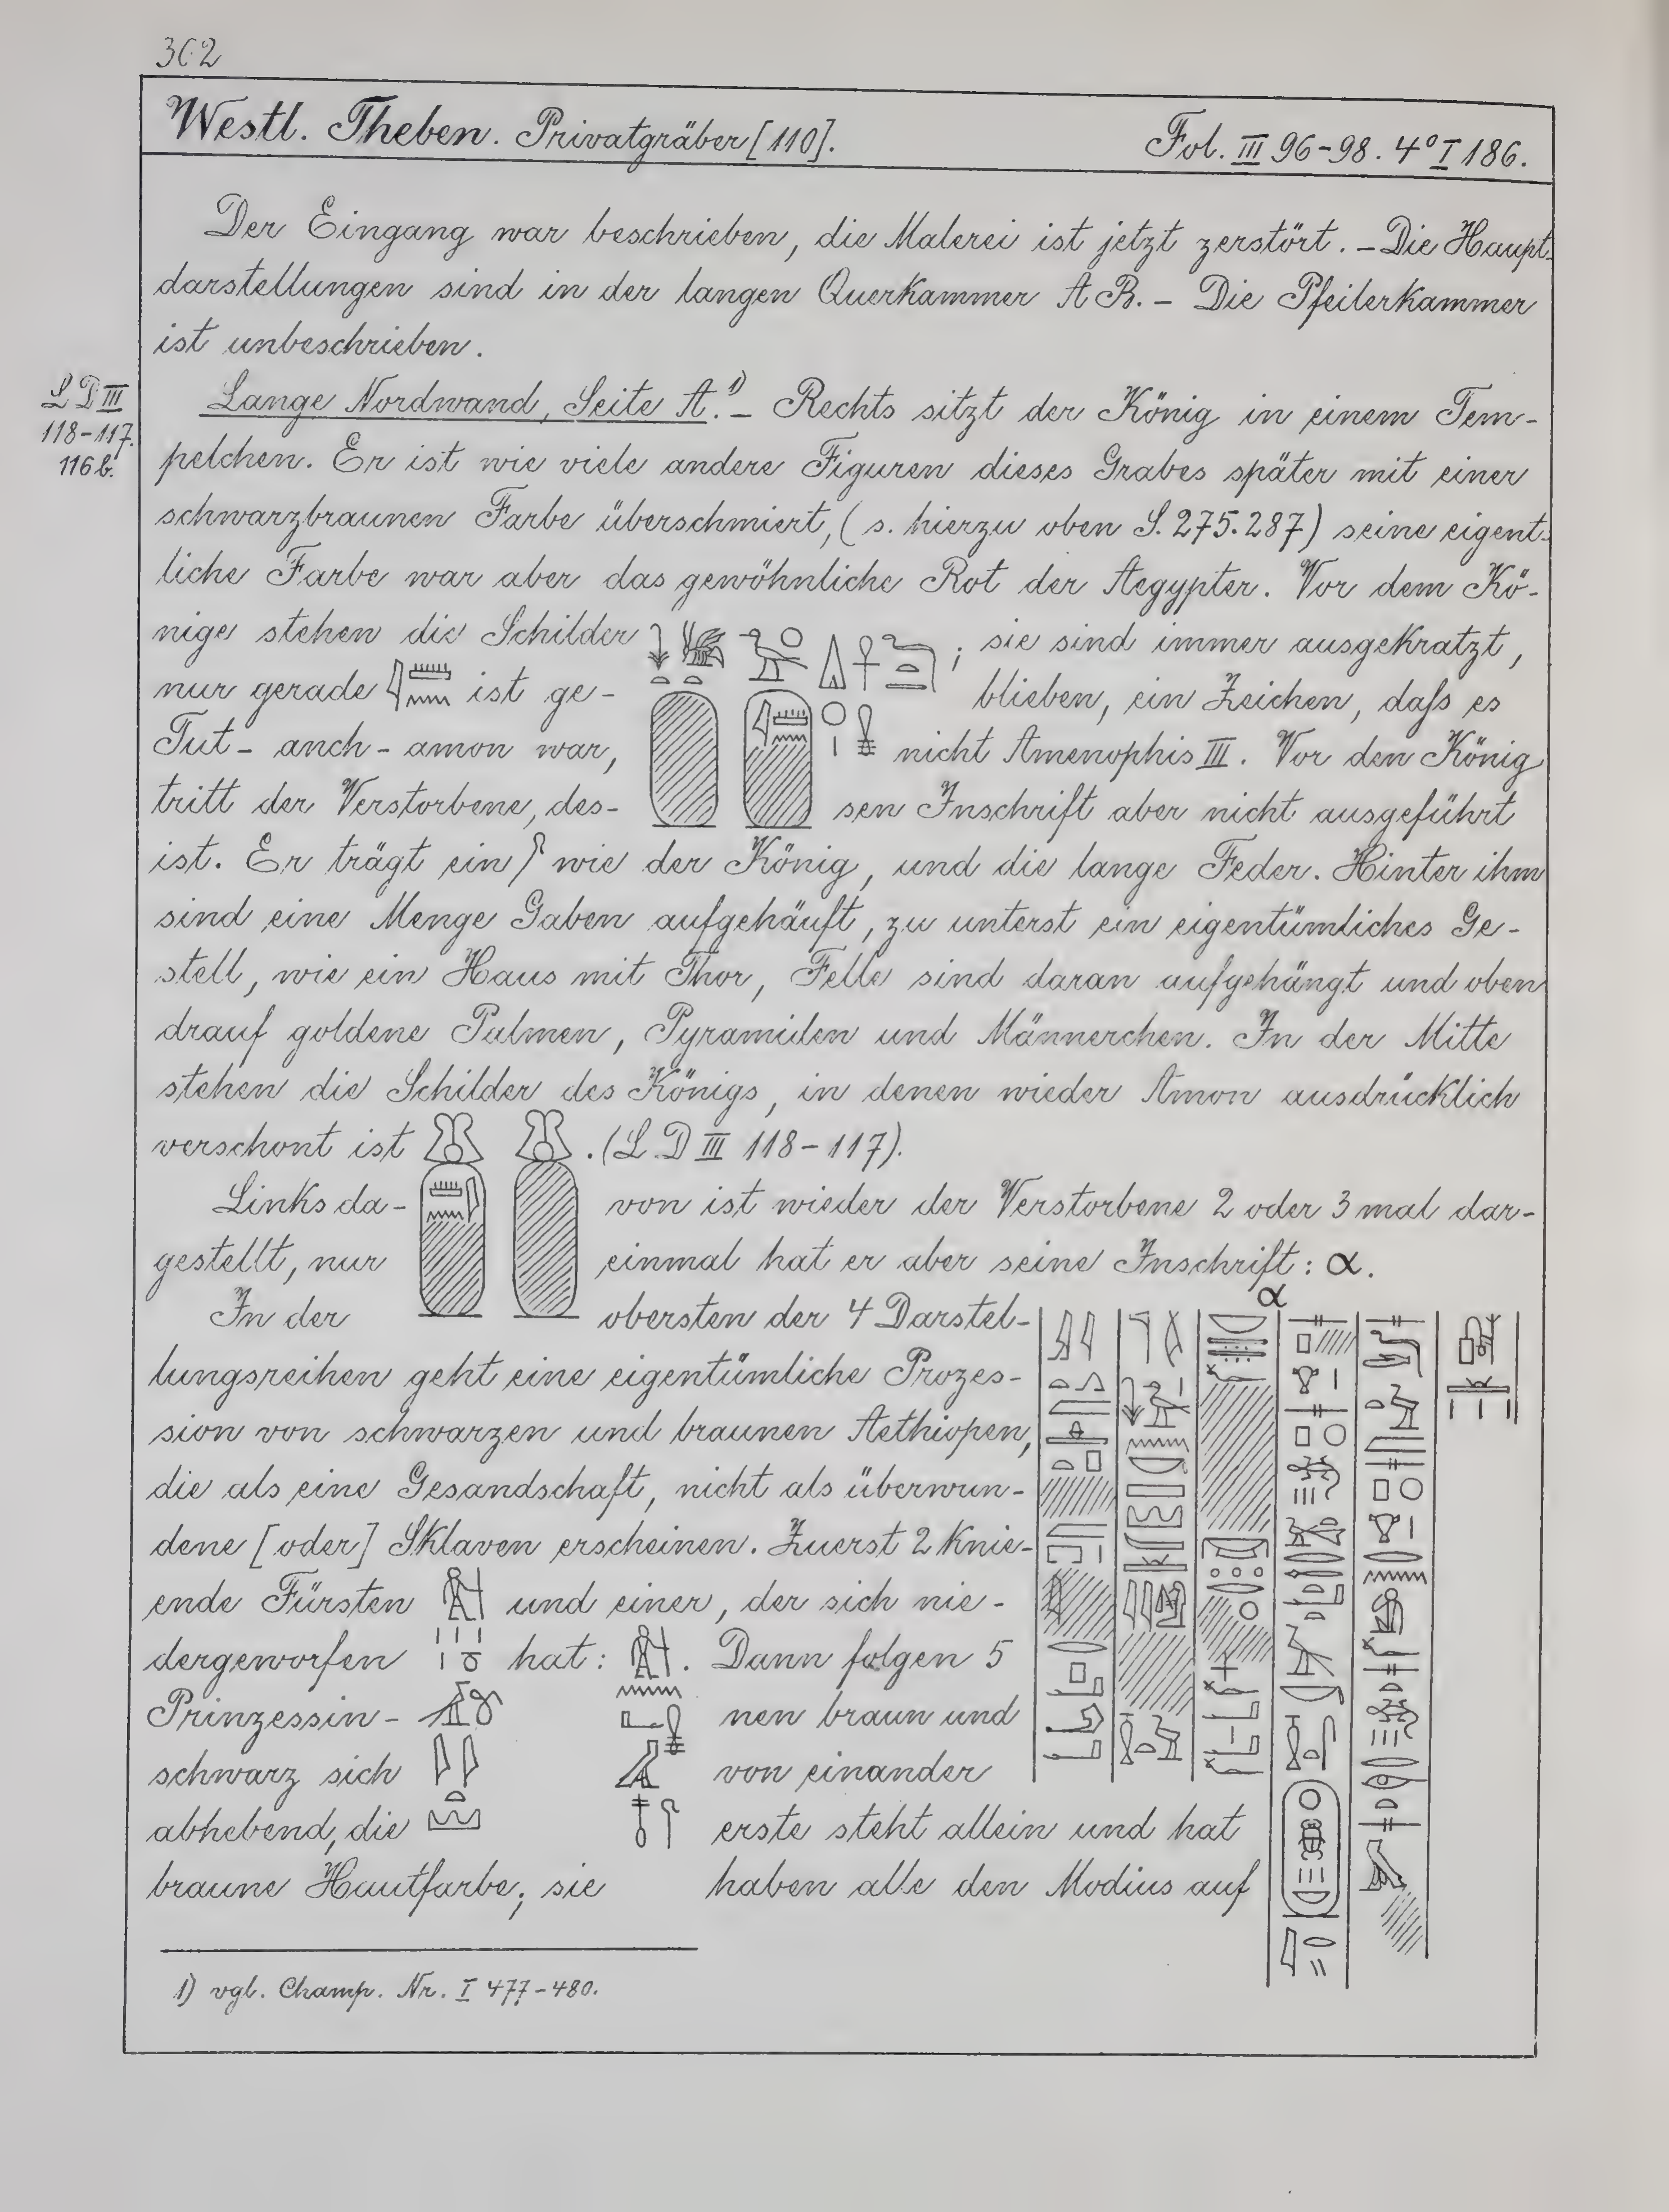 302
Westl. Theben. Privatgräber [110]. Fol. III 96-98. 4° I 186.
Der Eingang war beschrieben, die Malerei ist jetzt zerstört. – Die Haupt-
darstellungen sind in der langen Querkammer A B. – Die Pfeilerkammer
ist unbeschrieben.
L D III
118-117.
116 b.
Lange Nordwand, Seite A.¹⁾ – Rechts sitzt der König in einem Tem-
pelchen. Er ist wie viele andere Figuren dieses Grabes später mit einer
schwarzbraunen Farbe überschmiert, (s. hierzu oben S. 275. 287) seine eigent-
liche Farbe war aber das gewöhnliche Rot der Aegypter. Vor dem Kö-
nige stehen die Schilder ; sie sind immer ausgekratzt,
nur gerade ist ge- blieben, ein Zeichen, daſs es
Tut-anch-amon war, nicht Amenophis III. Vor den König
tritt der Verstorbene, des- sen Inschrift aber nicht ausgeführt
ist. Er trägt ein wie der König, und die lange Feder. Hinter ihm
sind eine Menge Gaben aufgehäuft, zu unterst ein eigentümliches Ge-
stell, wie ein Haus mit Thor, Felle sind daran aufgehängt und oben
drauf goldene Palmen, Pyramiden und Männerchen. In der Mitte
stehen die Schilder des Königs, in denen wieder Amon ausdrücklich
verschont ist . (L D III 118-117).
Links da- von ist wieder der Verstorbene 2 oder 3 mal dar-
gestellt, nur einmal hat er aber seine Inschrift: α.
α
In der obersten der 4 Darstel-
lungsreihen geht eine eigentümliche Prozes-
sion von schwarzen und braunen Aethiopen,
die als eine Gesandschaft, nicht als überwun-
dene [oder] Sklaven erscheinen. Zuerst 2 knie-
ende Fürsten und einer, der sich nie-
dergeworfen hat: . Dann folgen 5
Prinzessin- nen braun und
schwarz sich von einander
abhebend, die erste steht allein und hat
braune Hautfarbe; sie haben alle den Modius auf
1) vgl. Champ. Nr. I 477-480.